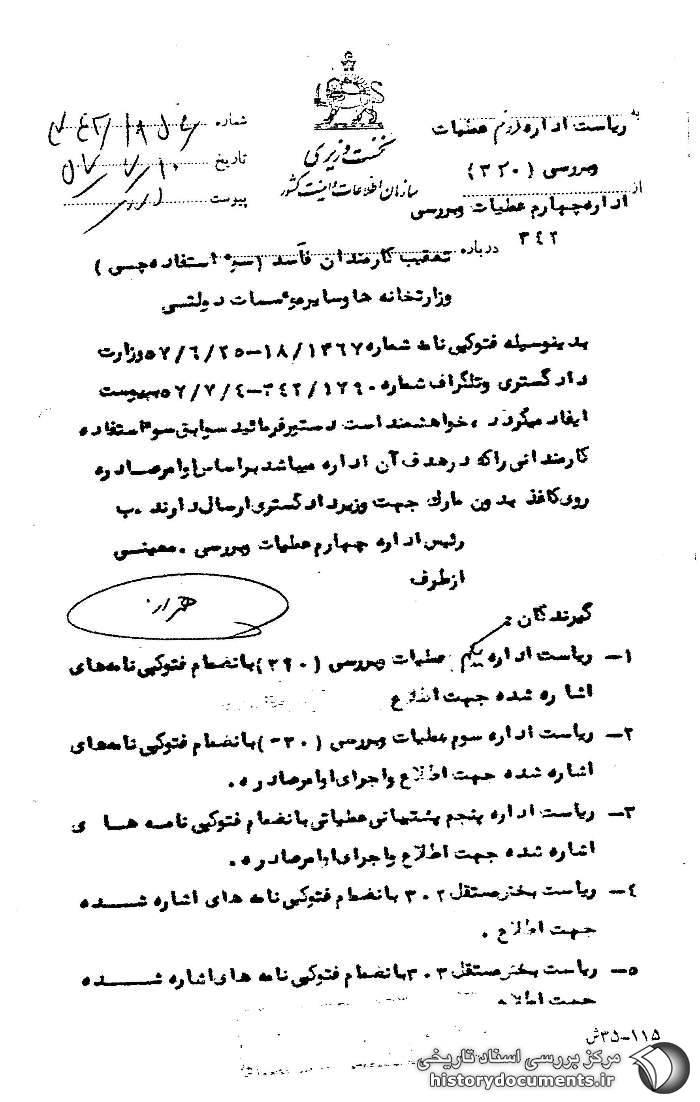 به ریاست اداره دوم عملیات
وبررسی (۳۲۰)
از اداره چهارم عملیات وبررسی
۳۴۲
نخست وزیری
سازمان اطلاعات و امنیت کشور
شماره
تاریخ
پیوست
درباره تعقیب کارمندان فاسد (سوء استفاده چی)
وزارتخانه ها وسایر موسسات دولتی
بدینوسیله فتوکپی نامه شماره ۱۸/۱۳۶۷-۵۷/۶/۲۵ وزارت
دادگستری وتلگراف شماره ۳۴۲/۱۷۹۰-۵۷/۷/۴ بپیوست
ایفاد میگردد، خواهشمند است دستور فرمائید سوابق سوء استفاده
کارمندانی راکه در هدف آن اداره میباشد براساس اوامر صادره
روی کاغذ بدون مارک جهت وزیر دادگستری ارسال دارند. ب
رئیس اداره چهارم عملیات وبررسی . معینی
از طرف
گیرندگان :
۱- ریاست اداره یکم عملیات وبررسی (۳۹۰) بانضمام فتوکپی نامه های
اشاره شده جهت اطلاع
۲- ریاست اداره سوم عملیات وبررسی (۳۰-) بانضمام فتوکپی نامه های
اشاره شده جهت اطلاع واجرای اوامر صادره .
۳- ریاست اداره پنجم پشتیبانی عملیاتی بانضمام فتوکپی نامه هـا ی
اشاره شده جهت اطلاع واجرای اوامر صادره .
۴- ریاست بخش مستقل ۳۰۲ بانضمام فتوکپی نامه های اشاره شـــده
جهت اطلاع .
۵- ریاست بخش مستقل ۳۰۳ بانضمام فتوکپی نامه های اشاره شــــده
جهت اطلاع
۱۱۵-۳۵ش
مرکز بررسی اسناد تاریخی
historydocuments.ir